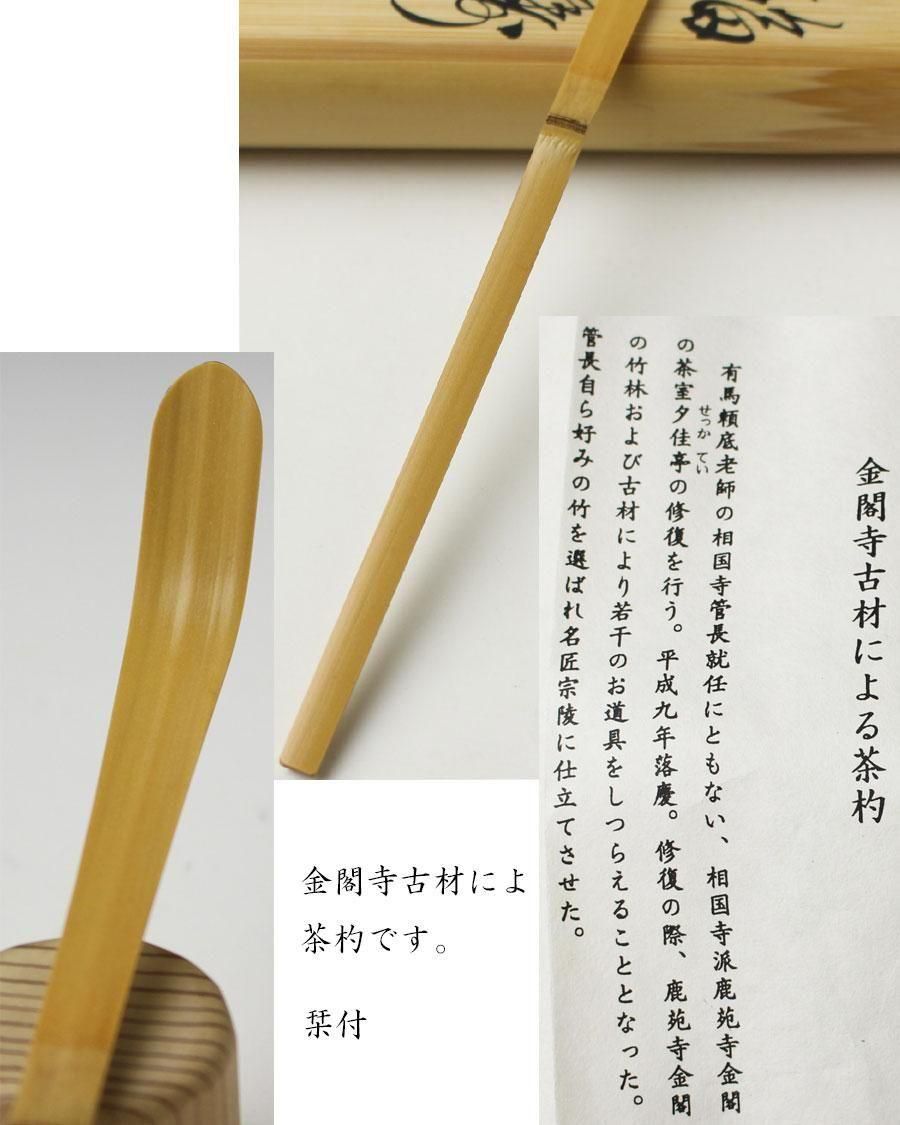 金閣寺古材による茶杓
有馬頼底老師の相国寺管長就任にともない、相国寺派鹿苑寺金閣
せっか てい
の茶室夕佳亭の修復を行う。平成九年落慶。修復の際、鹿苑寺金閣
の竹林および古材により若干のお道具をしつらえることとなった。
管長自ら好みの竹を選ばれ名匠宗陵に仕立てさせた。
金閣寺古材によ
茶杓です。
栞付